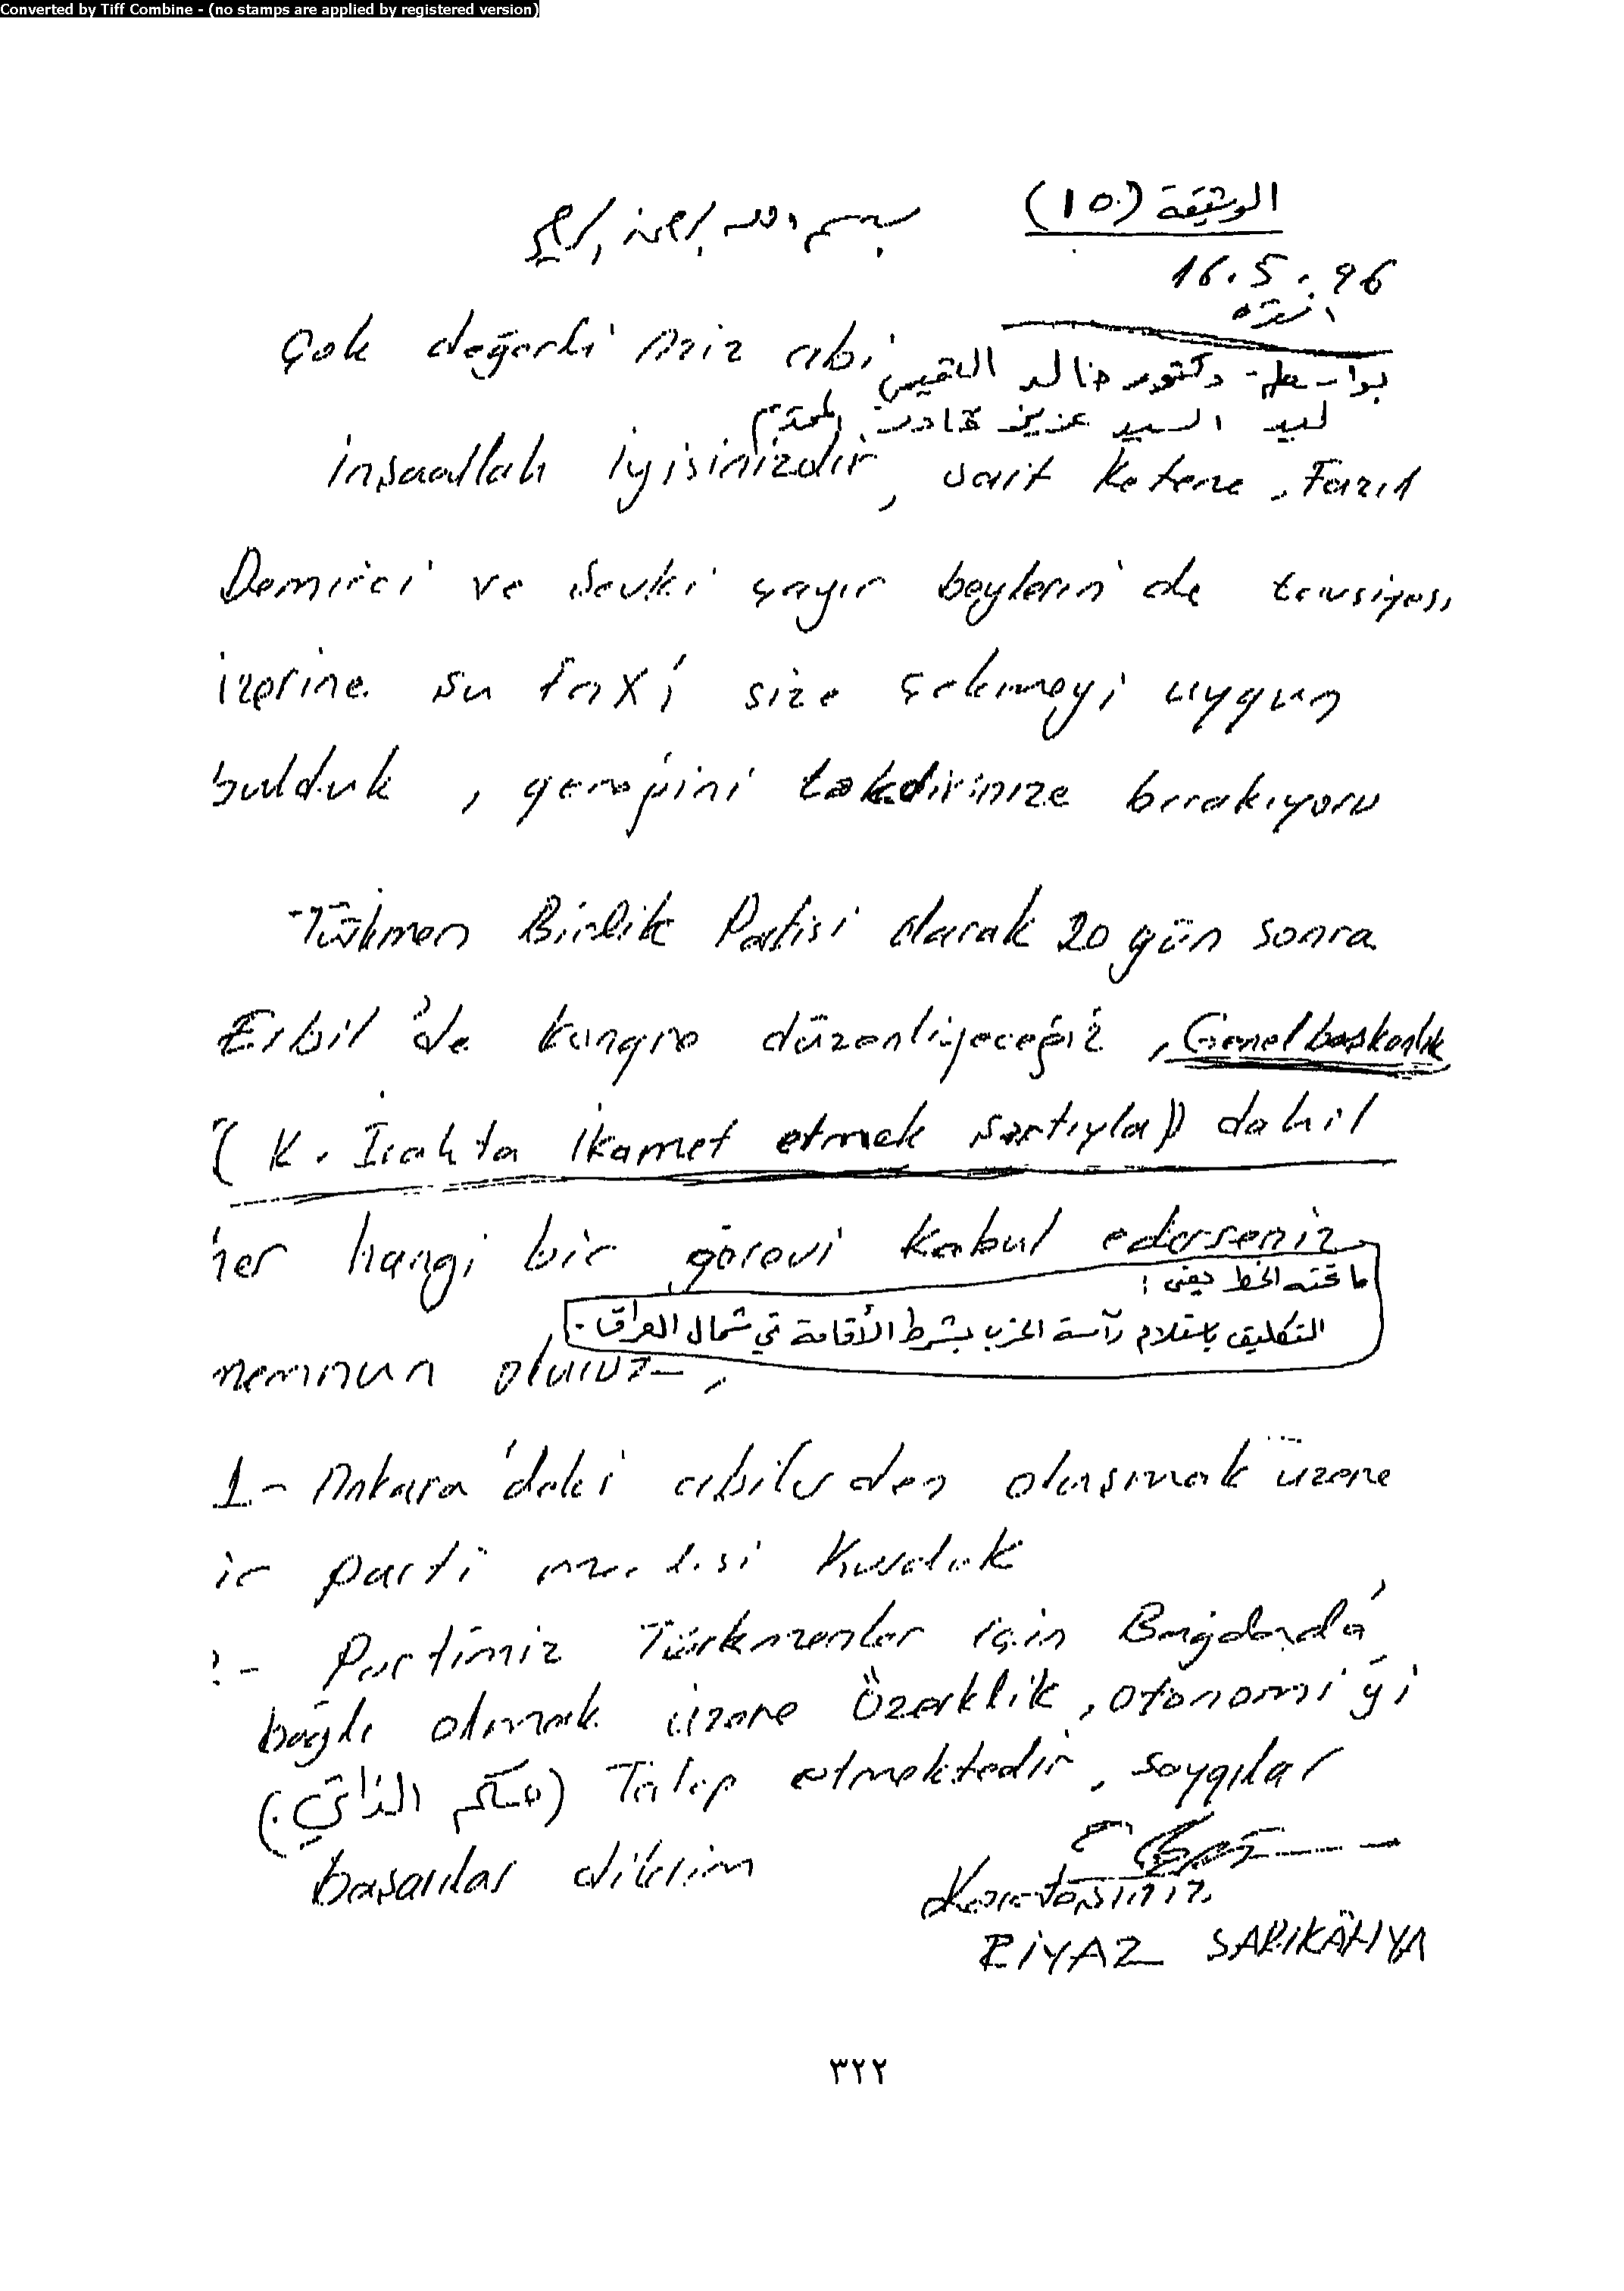 Converted by Tiff Combine - (no stamps are applied by registered version)
الوثيقة (١٥)
بسم الله الرحمن الرحيم
16.5.96
انقره
Çok değerli Aziz abi
بواسطة دكتور خالد
السيد عزيز قادر المحترم
inşaallah iyisinizdir, sait Ketene, Fazıl
Demirci ve Şevki çayır beylerin de tavsiyesi
izerine şu fax'ı size çekmeyi uygun
bulduk, gereğini takdirinize bırakıyoru
Türkmen Birlik Partisi olarak 20 gün sonra
Erbil'de kongre düzenliyeceğiz, Genel başkanlık
(K. Irakta ikamet etmek şartıyla) dahil
her hangi bir görevi kabul ederseniz
ما تحته الخط يعني :
التكليف بإستلام رآسة الحزب بشرط الأقامة في شمال العراق.
memnun oluruz,
1- Ankara'daki abilerden oluşmak üzere
ir parti meclisi Kurduk
- Partimiz Türkmenler için Bağdad'a
bağlı olmak üzere Özerklik, otonomi'yi
(حكم الذاتي) Talep etmektedir, saygılar
başarılar dilerim
Kardaşınız
RİYAZ SARIKÂHYA
٣٢٢